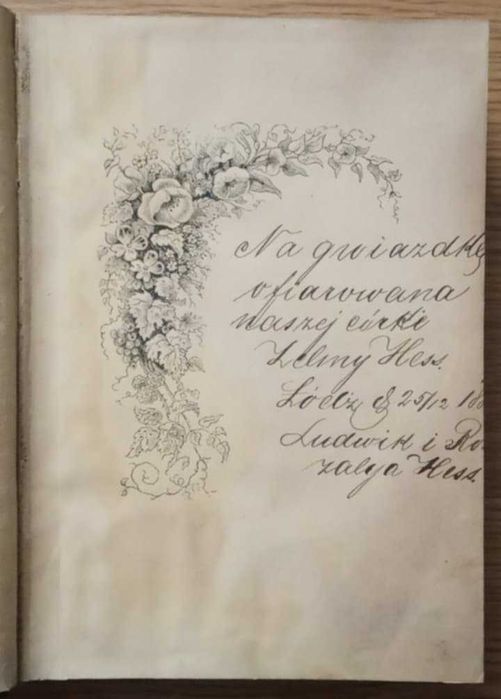 Na gwiazdkę
ofiarowana
naszej córki
Zelmy Hess.
Łódź d 25/12 18
Ludwik i Ro
zalya Hess